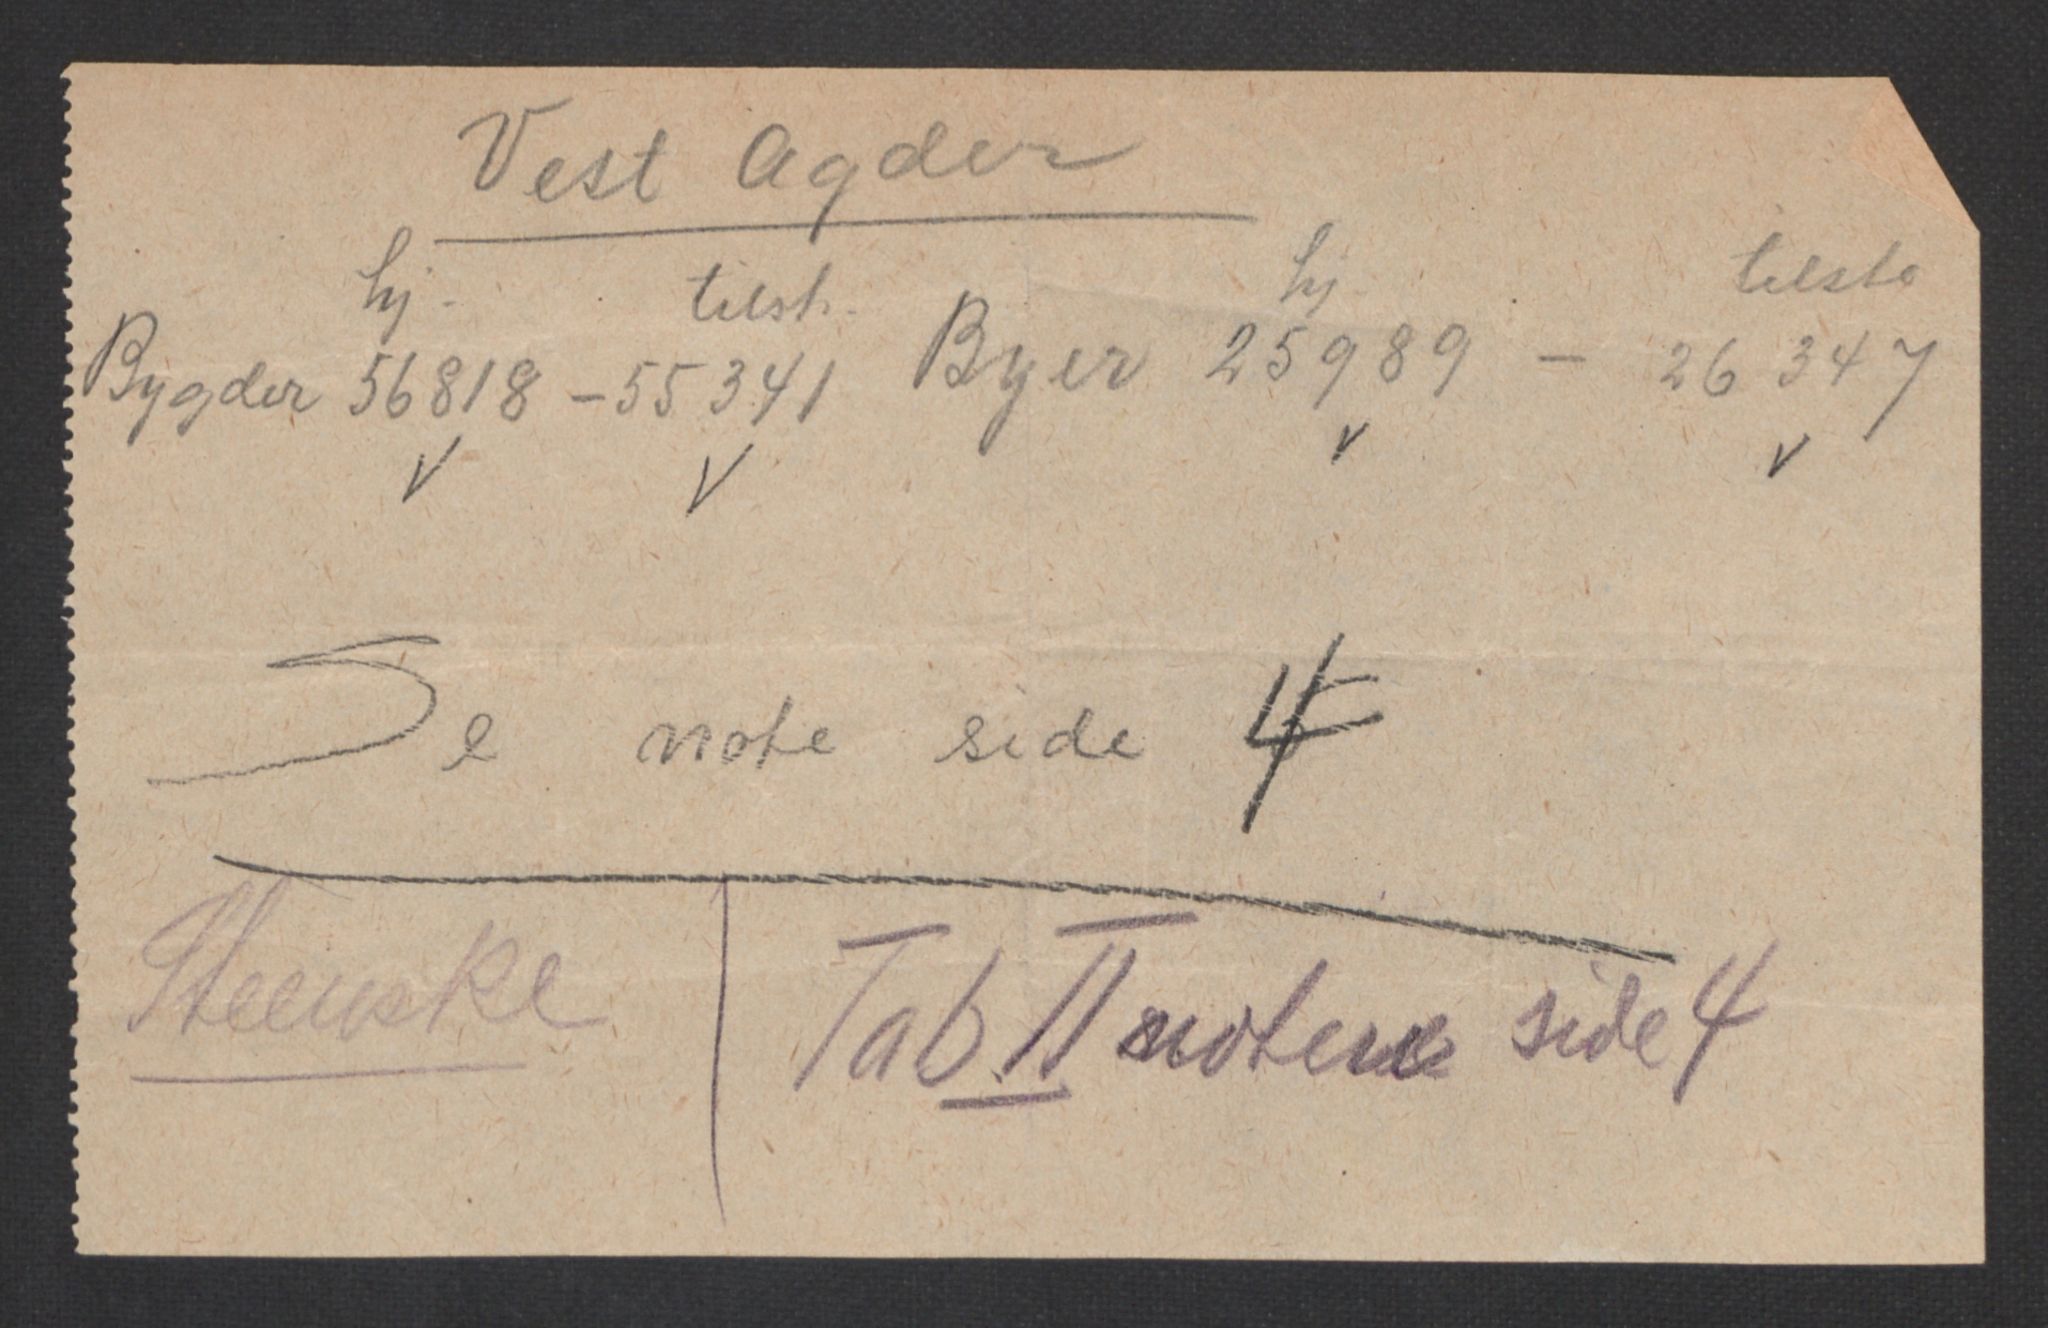 Vest Agder
hj. tilst. hj. tilste
Bygder 56818 - 55341 Byer 25989 - 26347
Se note side 4
Steenske
Tab. II noter side 4